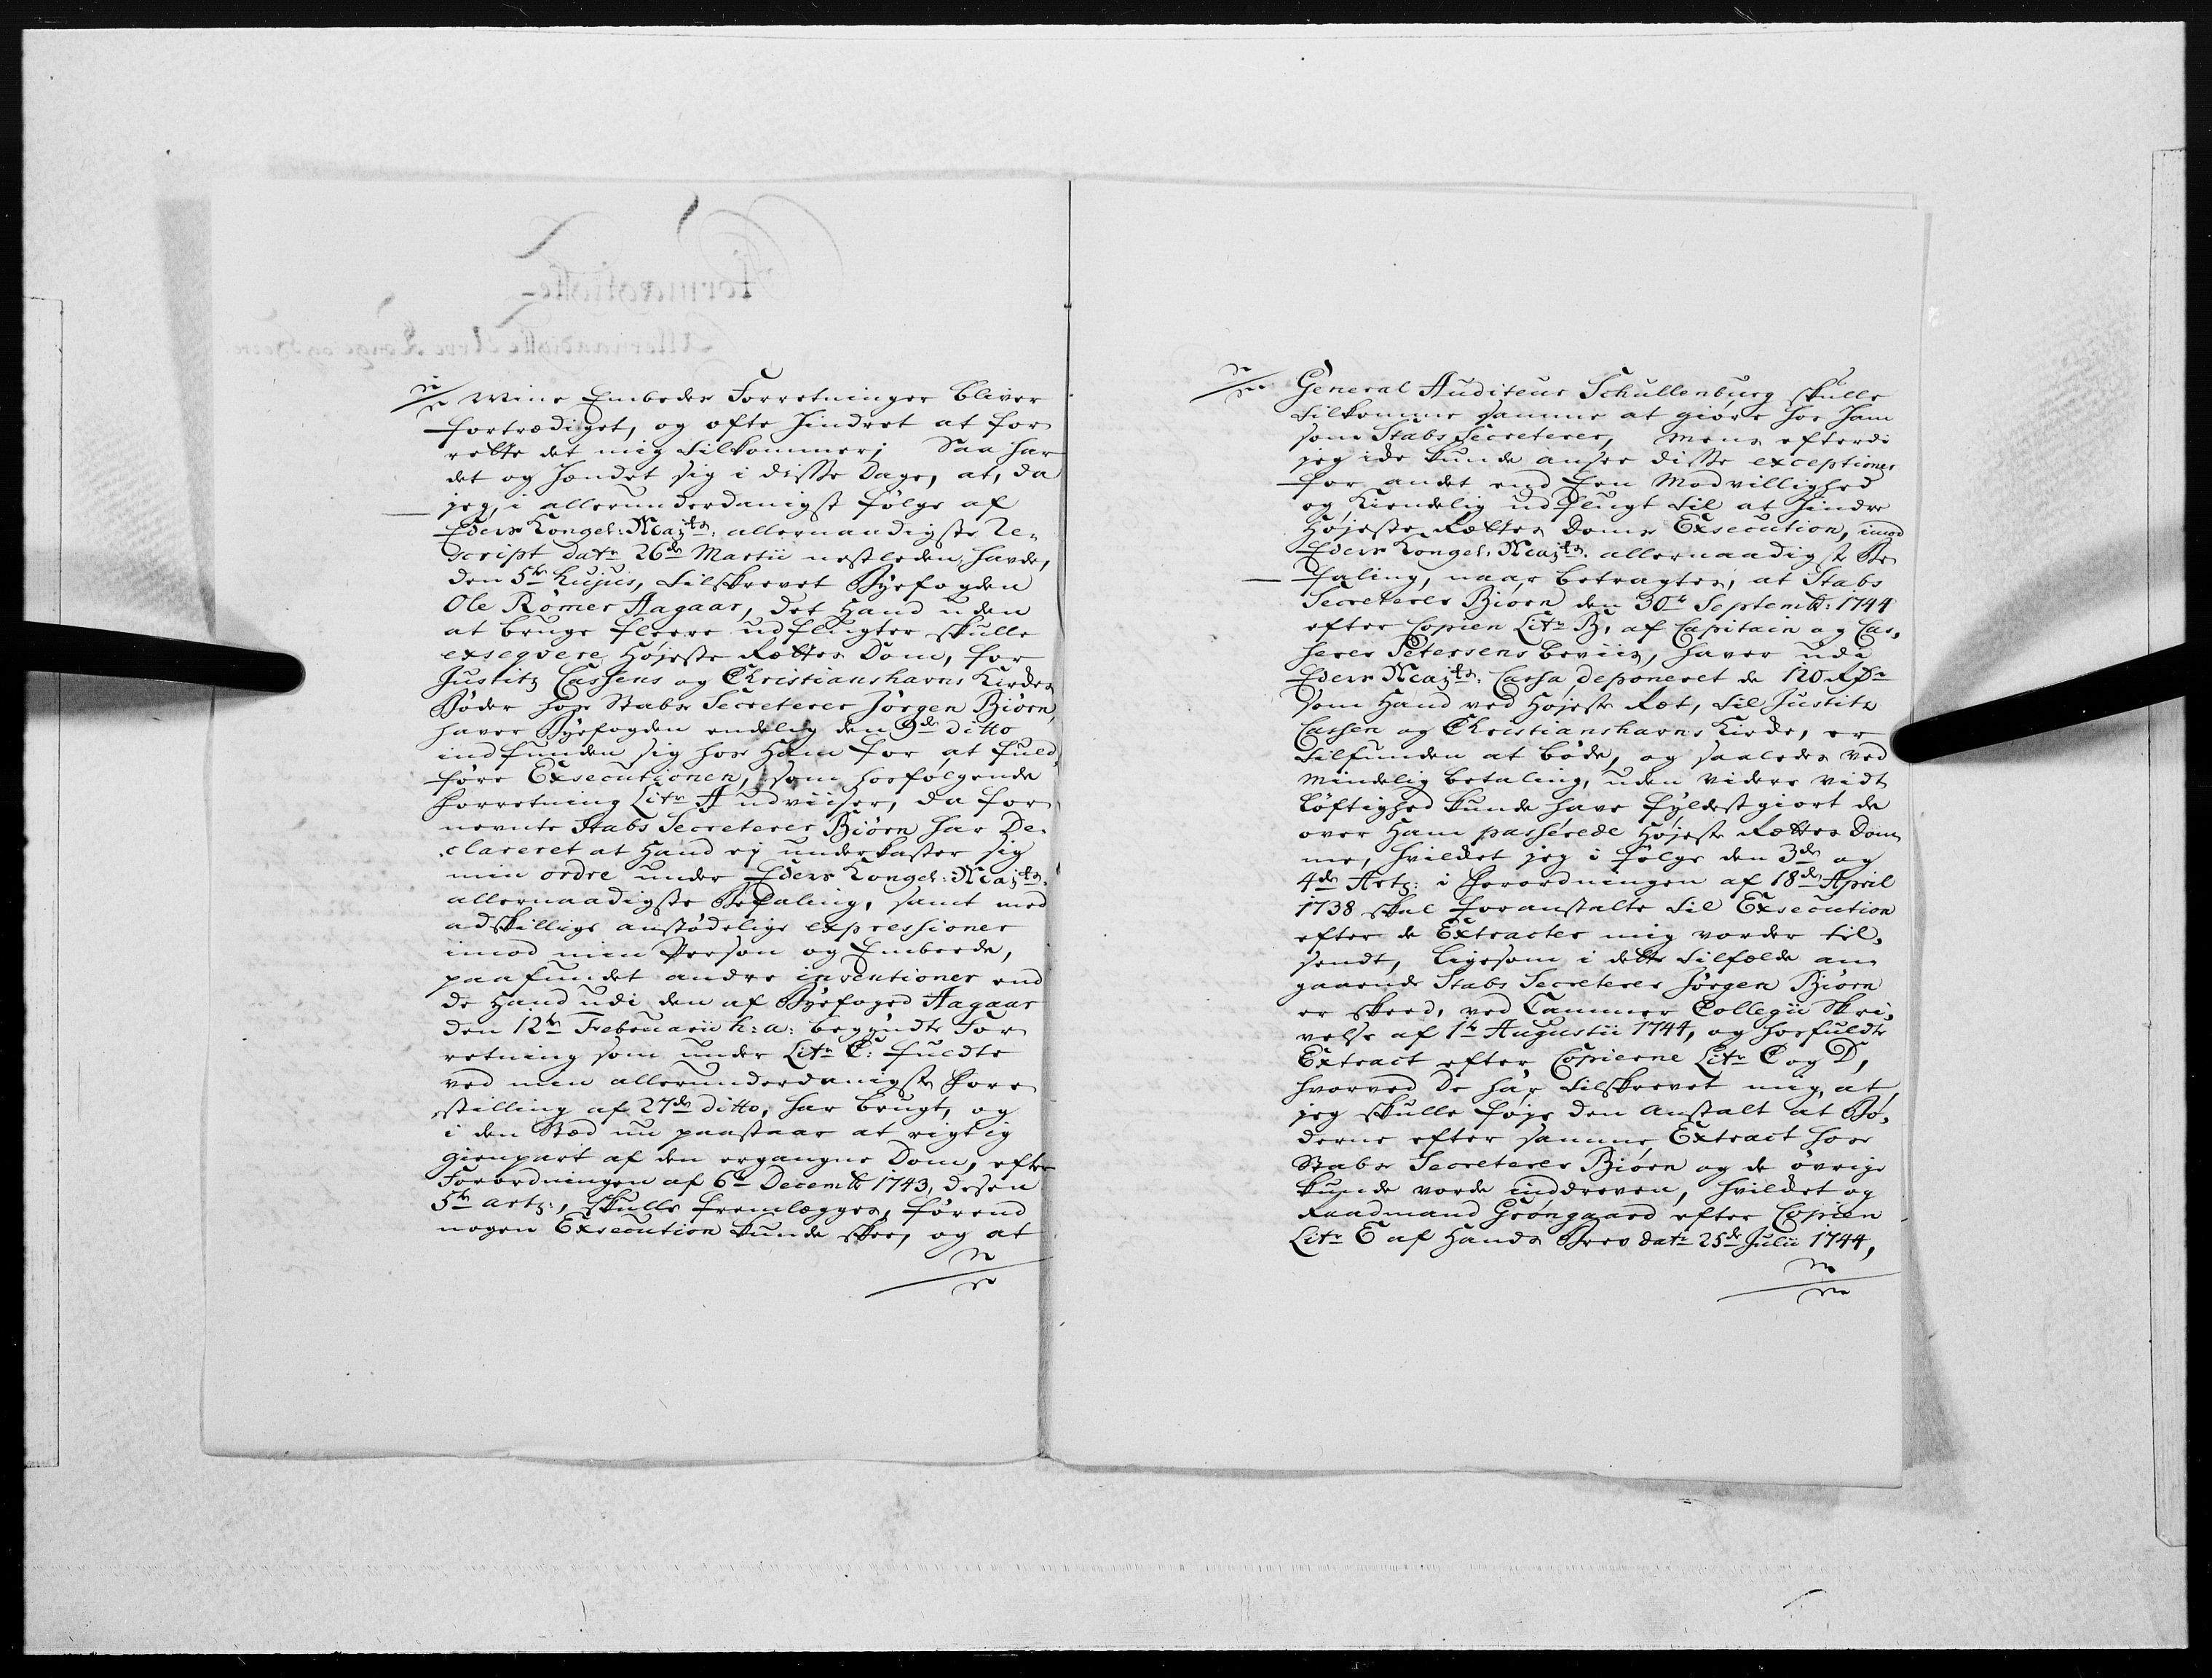 mine Embeder Forretninger bliver
fortrædiget, og ofte hindret at for
rette det mig tilkommer; Saa har
det og hændet sig i disse Dage, at, da
jeg, i allerunderdanigst følge af
Eders Kongel: Majts: allernaadigste Re,
script dat: 26de Martii nestleden, havde,
den 5te hujus, tilskrevet Byefogden
Ole Römer Aagaar, det Hand uden
at bruge fleere udflugter skulle
exseqvere Højeste Rettes Dom, for
Justitz Cassens og Christianshavns Kirdes
Bøder hos Stabs Secreterer Jørgen Biørn,
haver Byefogden endelig den 9de ditto
indfunden sig hos Ham for at fuld,
føre Exsecutionen, som hosfølgende
Forretning Litr A udviiser, da for
nevnte Stabs Secreterer Biørn har De,
clareret at Hand ej underkaster sig
min ordre under Eders Kongel: Majts:
allernaadigste Befaling, samt med
adskillige anstødelige expressioner
imod min Person og Embede,
paafundet andre inventioner end
de Hand udi den af Byefoged Aagaar
den 12te Februarii h: a: begyndte For
retning som under Litr C: fuldte
ved min allerunderdanigste Fore
stilling af 27de ditto, har brugt, og
i den Sted nu paastaar at rigtig
gienpart af den ergangne Dom, efter
Forordningen af 6te Decembr 1743, desen
5te art:, skulle fremlægges, førend
nogen Exsecution kunde skee, og at
General Auditeur Schullenburg skulle
tilkomme samme at giøre hos Ham
som Stabs Secreterer, mens efterdi
jeg ide kunde ansee disse exceptiones
for andet end Een Modvillighed
og kiendelig udflugt til at hindre
Højeste Rettes Doms Exsecution, imod
Eders Kongel: Majts: allernaadigste Be
faling, naar betragtes, at Stabs
Secreterer Biørn den 30te Septembr: 1744
efter Copien Litr B, af Capitain og Cas,
serer Petersens beviis, haver udi
Eders Majts: Cassa deponeret de 120 Rdr
som Hand ved Højeste Ret, til Justitz
Cassen og Christianshavns Kirde, er
tilfunden at bøde, og saaledes ved
mindelig betaling, uden videre vidt
løftighed kunde have fyldestgiort de
over Ham passerede Højeste Rettes Dom,
me, hvildet jeg i følge den 3de og
4de Art: i Forordningen af 18de April
1738 skal foranstalte til Exsecution
efter de Extracter mig vorder til,
sendt, ligesom i dette tilfælde an
gaaende Stabs Secreterer Jørgen Biørn
er skeed, ved Cammer Collegii Skri,
velse af 1te Augustii 1744, og hosfuldte
Extract efter Copierne Litr C og D,
hvorved De har tilskrevet mig, at
jeg skulle føje den Anstalt at Bø,
derne efter samme Extract hos
Stabs Secreterer Biørn og de øvrige
kunde vorde inddreven, hvildet og
Raadmand Grøngaard efter Copien
Litr E af Hands Brev dat: 25de Julii 1744,